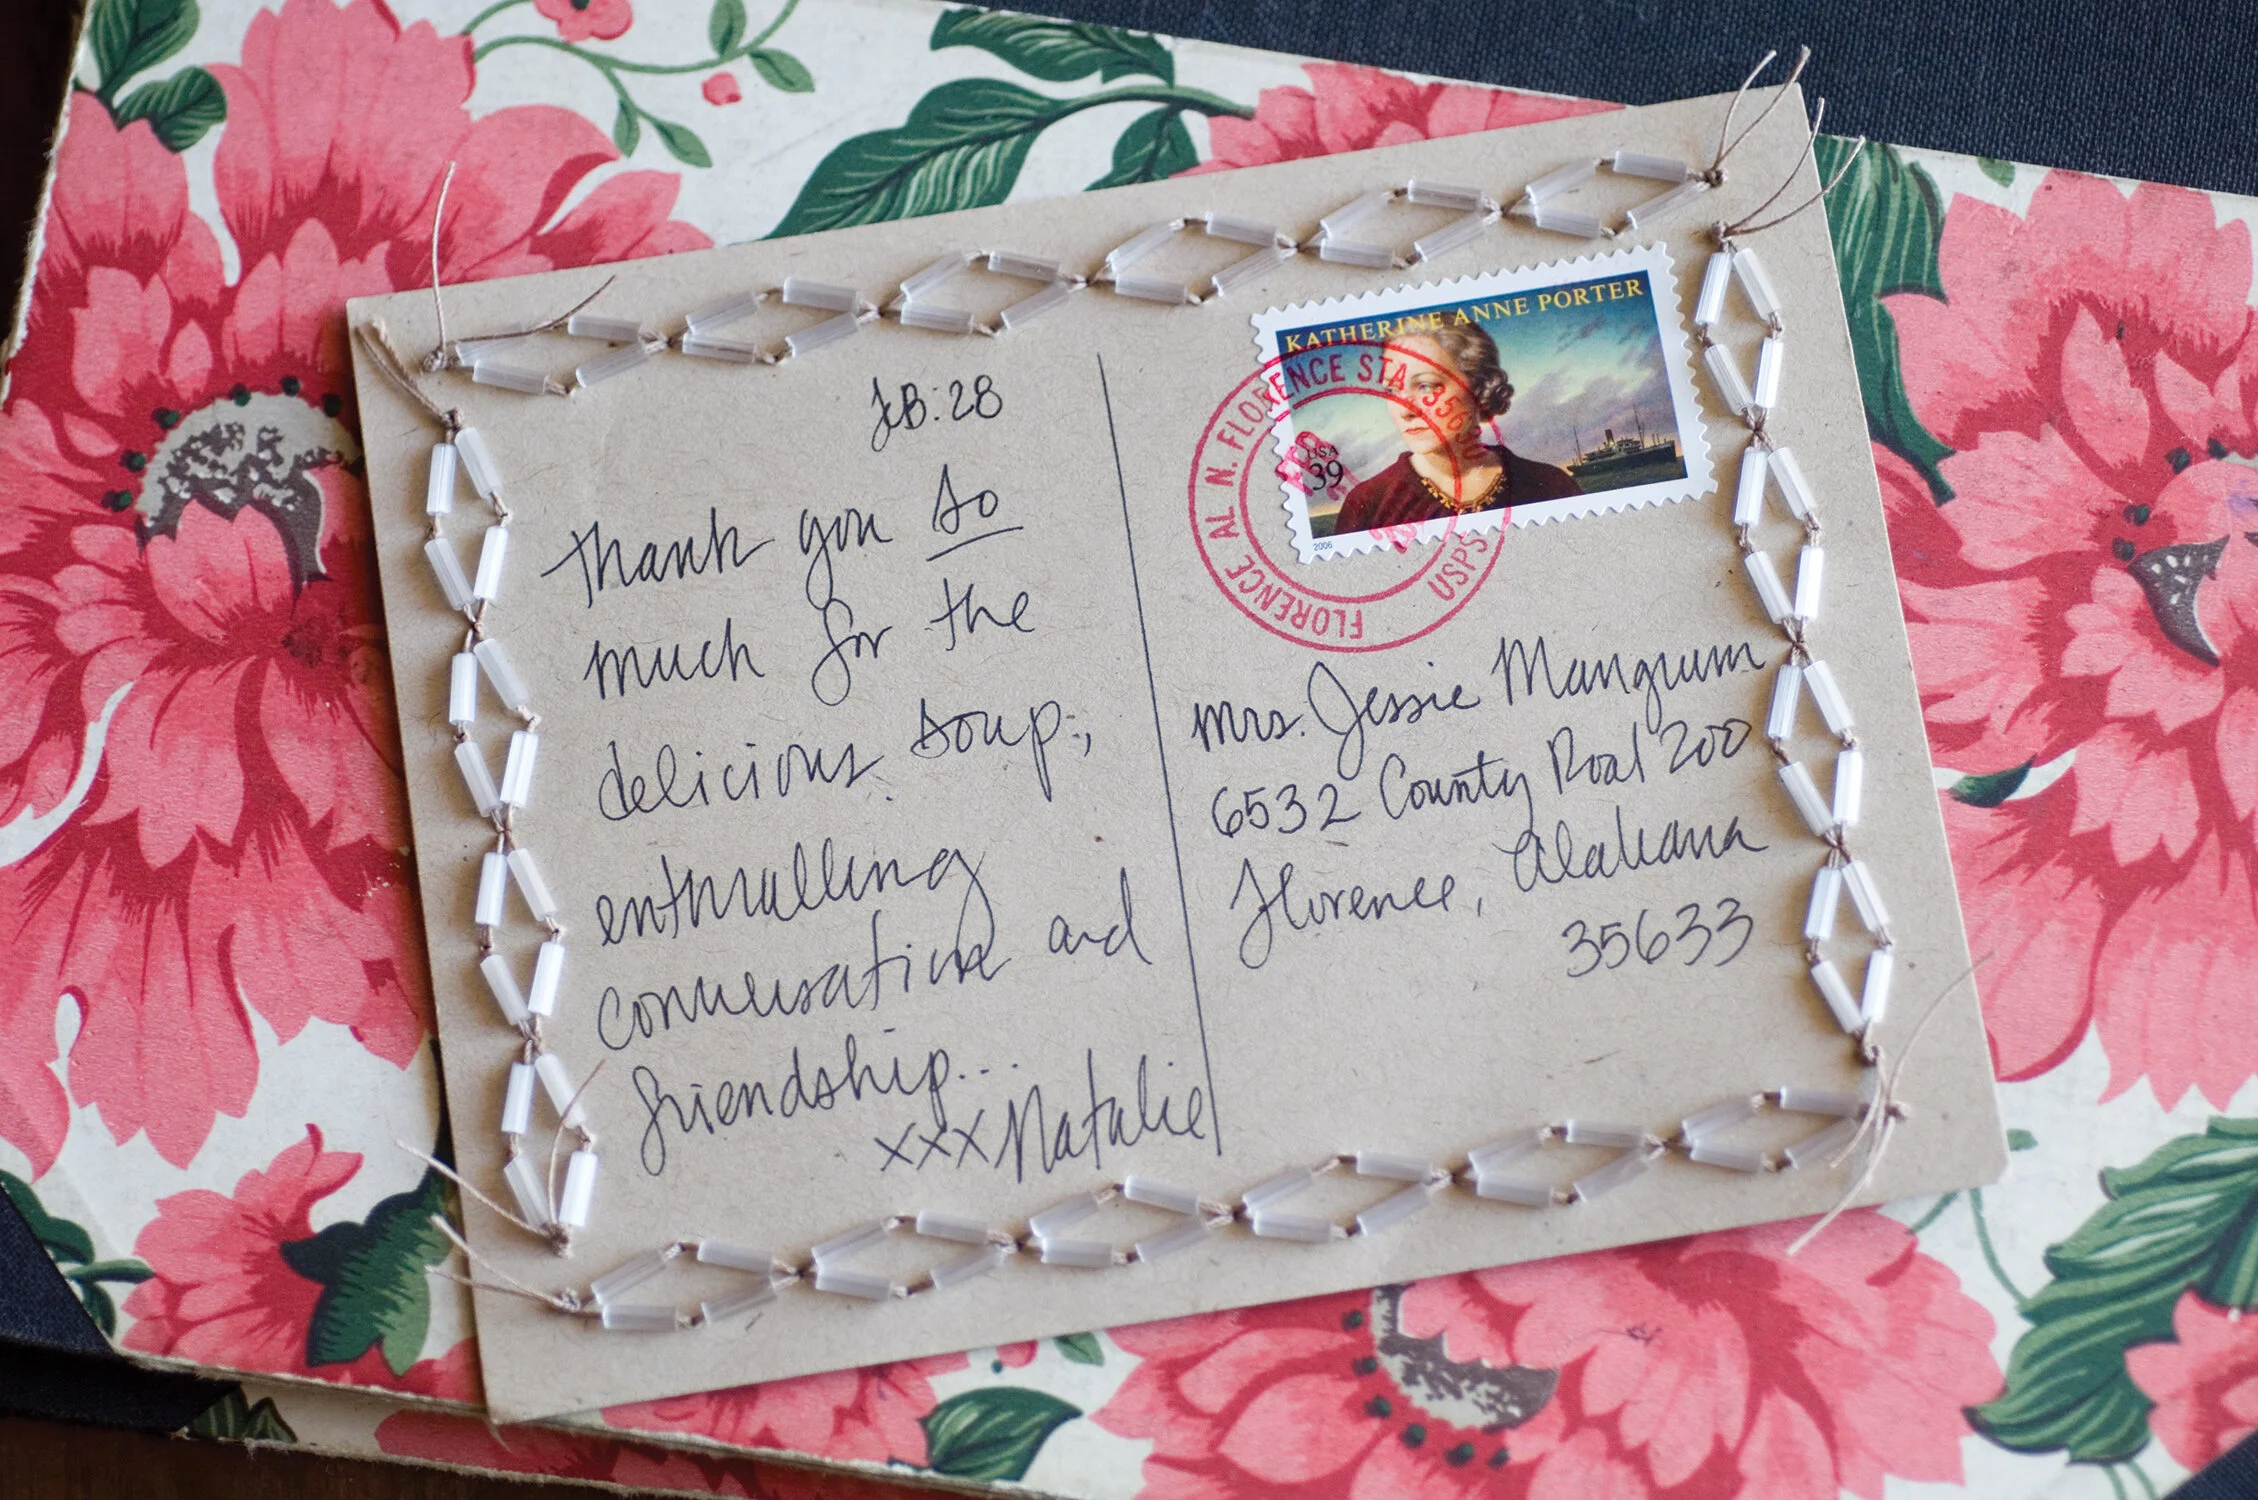 FEB: 28
Thank you so
much for the
delicious soup,
enthralling
conversation and
friendship...
xxx Natalie
KATHERINE ANNE PORTER
USA
39
2006
FLORENCE AL N. FLORENCE STA. 35630
USPS
FEB
Mrs. Jessie Mangrum
6532 County Road 200
Florence, Alabama
35633